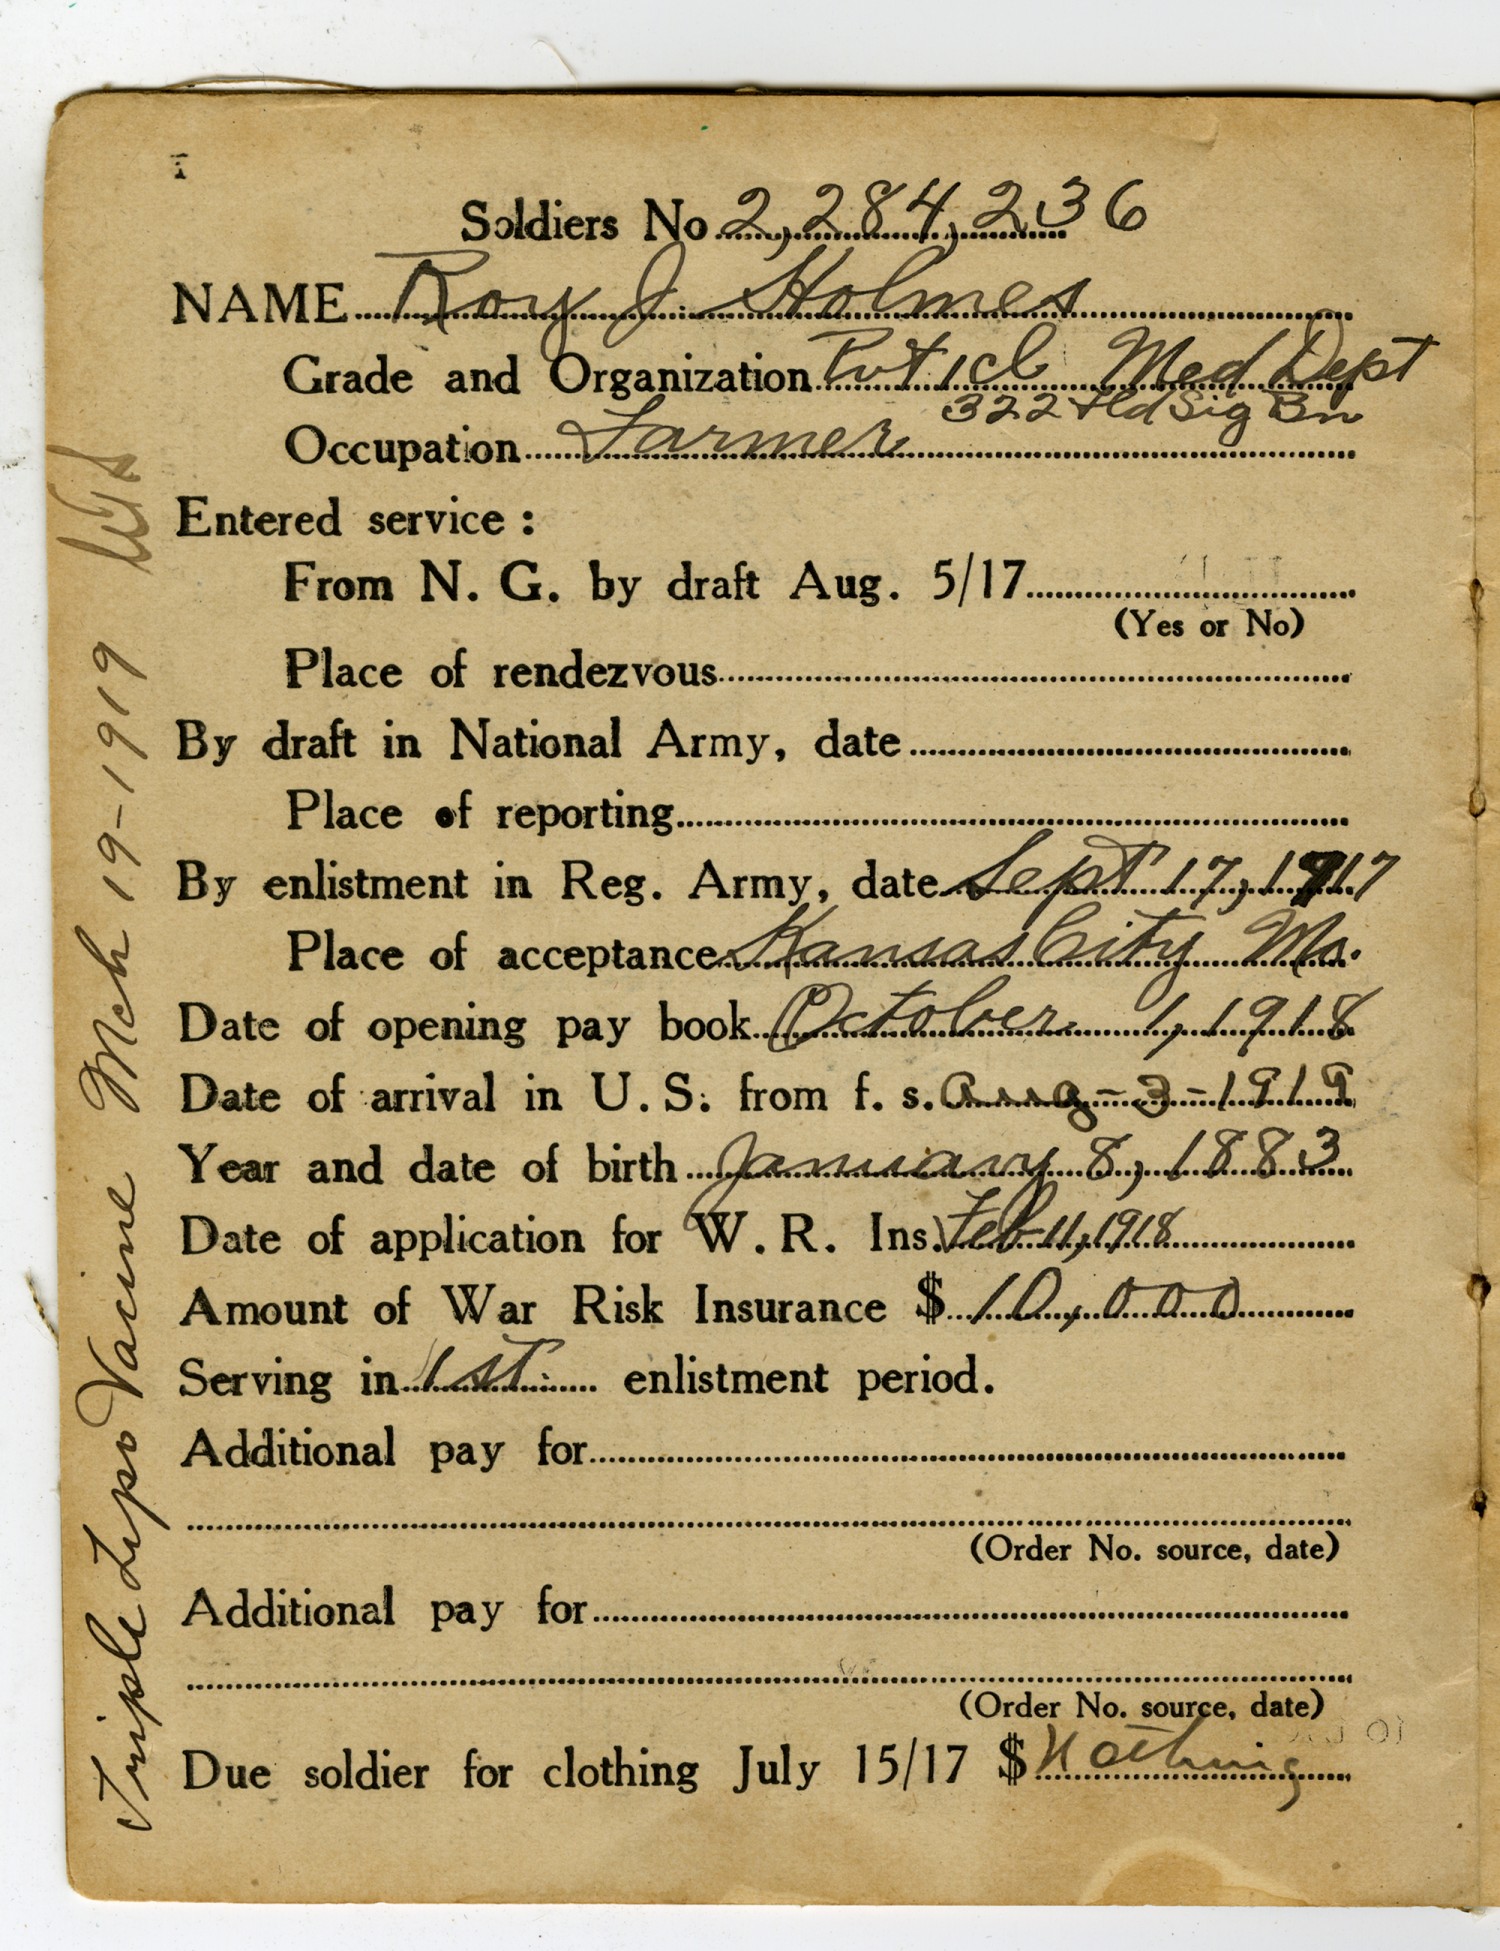 1
Soldiers No. 2,284,236
NAME Roy J. Holmes
Grade and Organization Pvt 1cl Med Dept
322 Fld Sig Bn
Occupation Farmer
Entered service :
From N. G. by draft Aug. 5/17
(Yes or No)
Place of rendezvous
By draft in National Army, date
Place of reporting
By enlistment in Reg. Army, date Sept 17, 1917
Place of acceptance Kansas City Mo.
Date of opening pay book October 1, 1918
Date of arrival in U. S. from f. s. Aug-3-1919
Year and date of birth January 8, 1883
Date of application for W. R. Ins. Feb 11, 1918
Amount of War Risk Insurance $ 10,000
Serving in 1st. enlistment period.
Additional pay for
(Order No. source, date)
Additional pay for
(Order No. source, date)
Due soldier for clothing July 15/17 $ Nothing
Triple Lipo Vacine Mch 19-1919